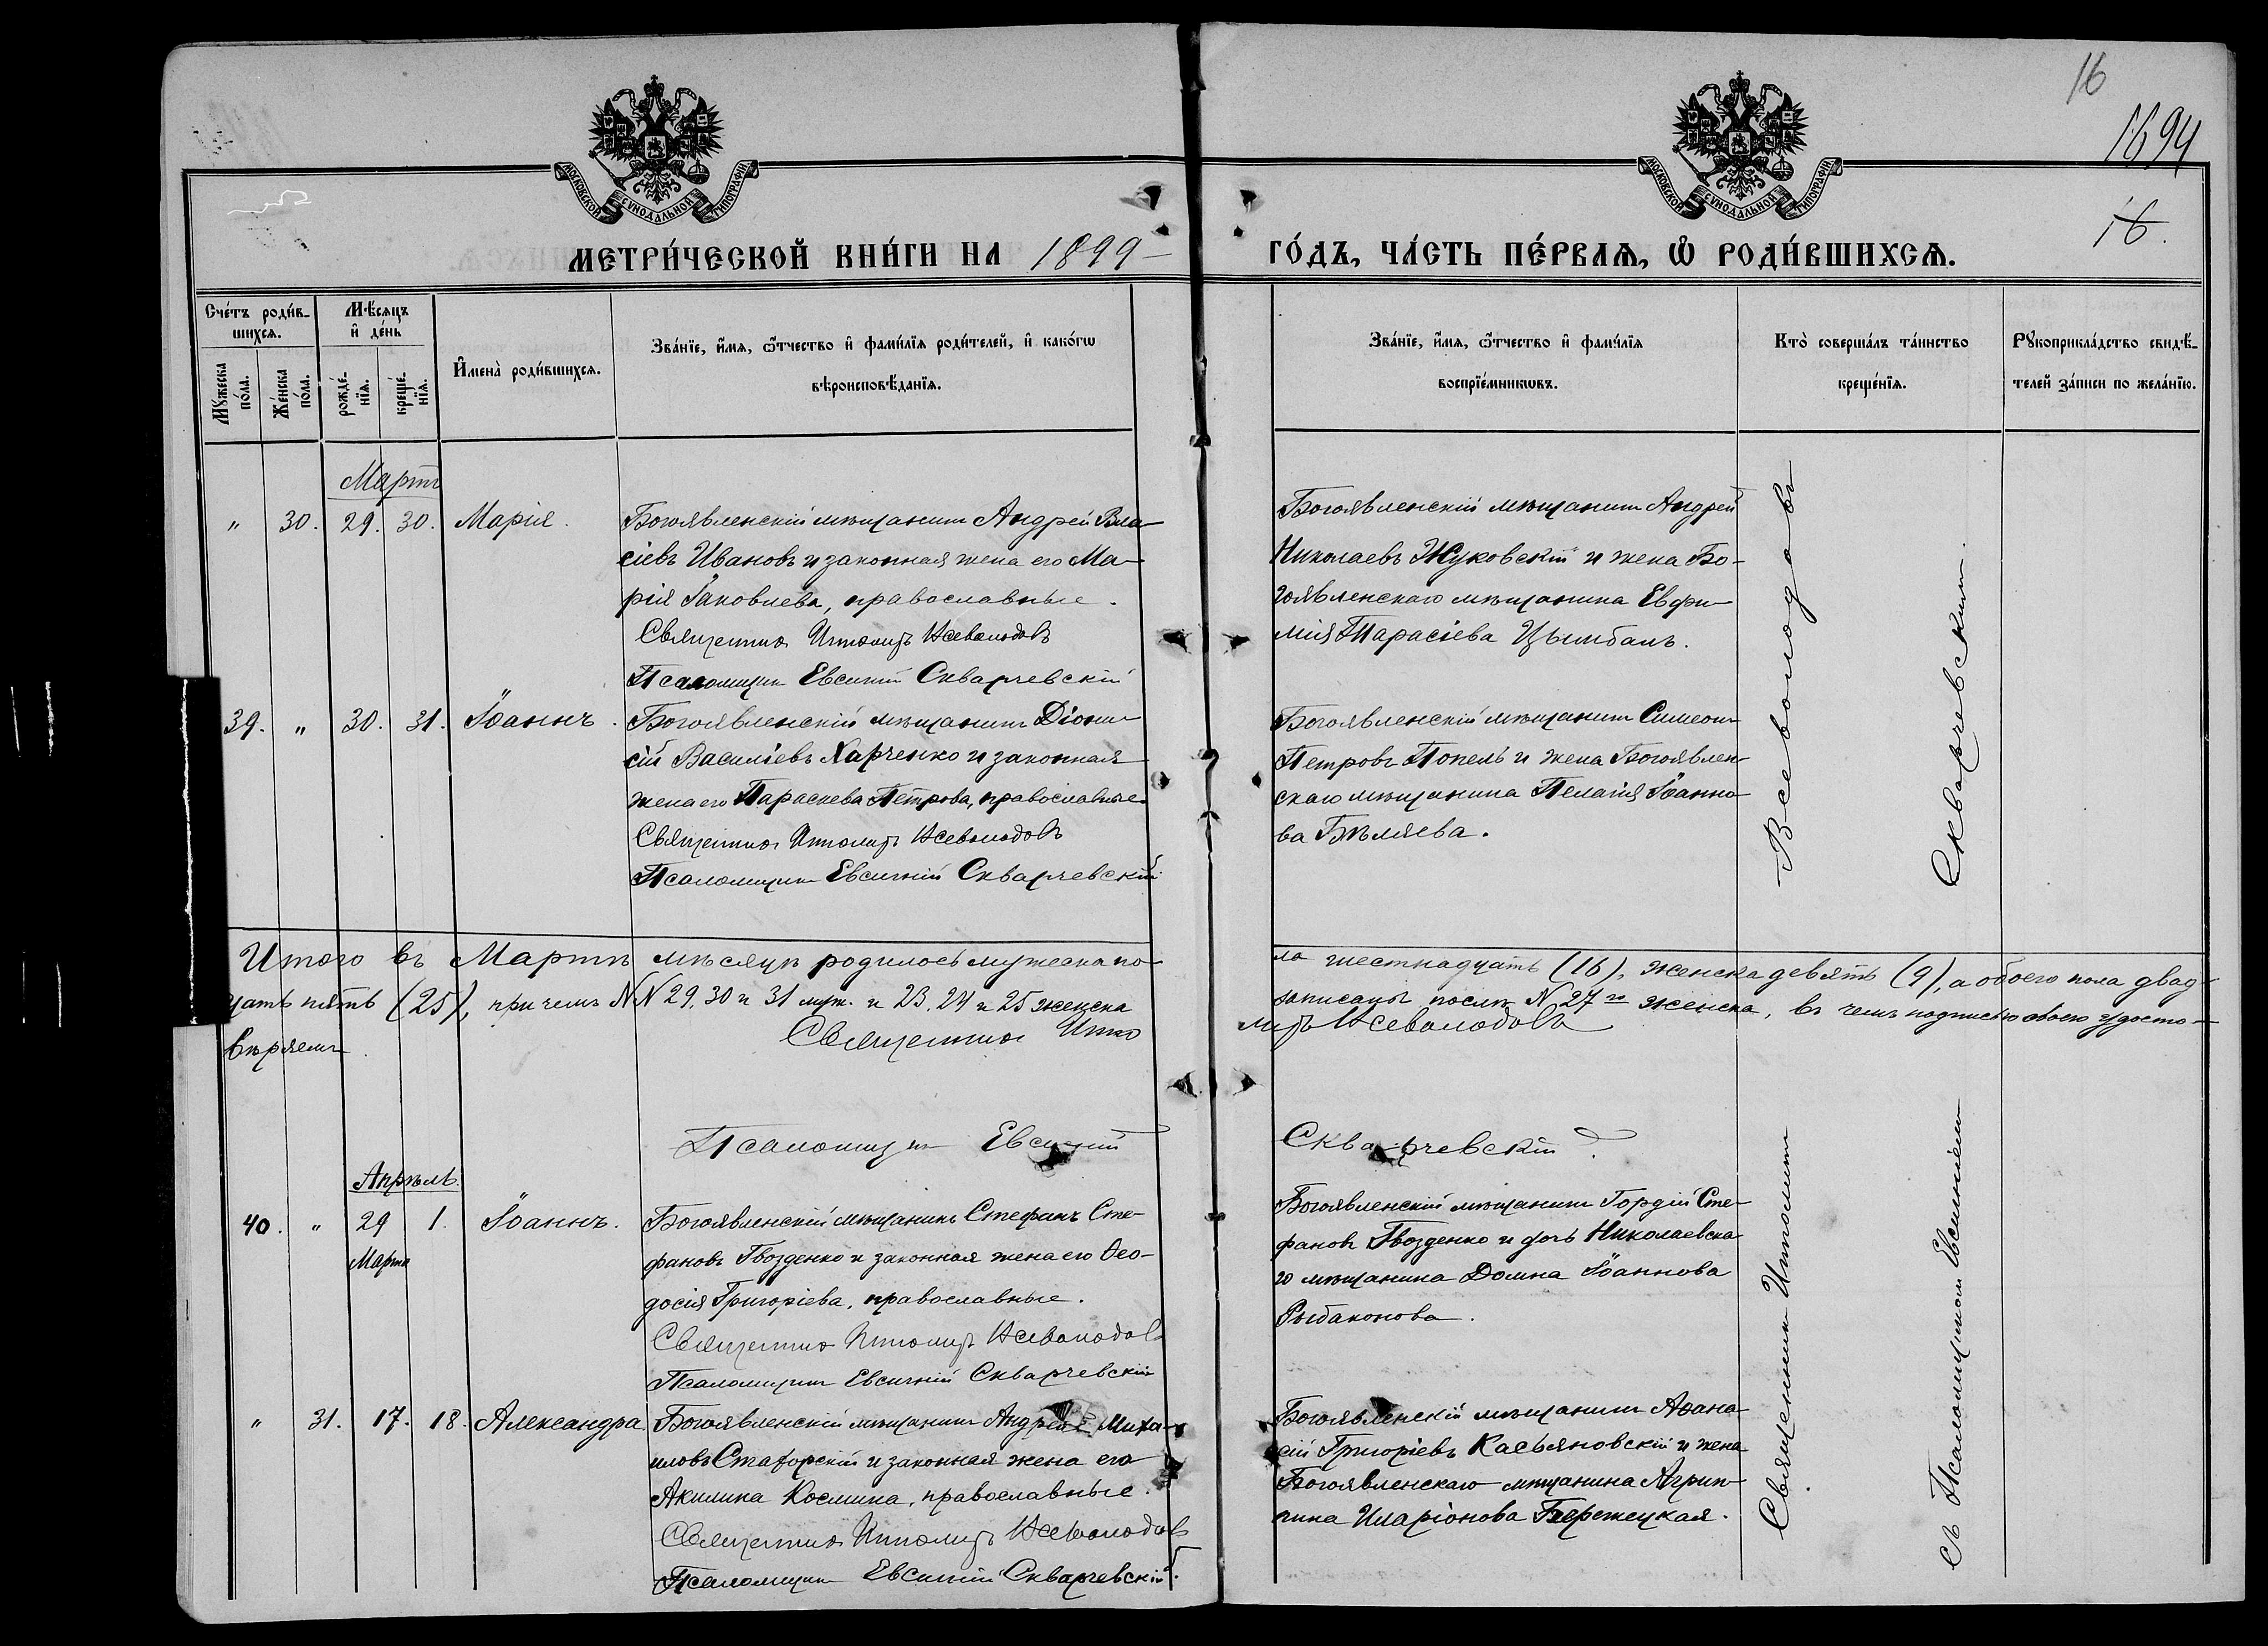 16
1694
16.
МОСКОВСКОЙ СѴНОДАЛЬНОЙ ТИПОГРАФІИ
МОСКОВСКОЙ СѴНОДАЛЬНОЙ ТИПОГРАФІИ
МЕТРИ́ЧЕСКОЙ КНИ́ГИ НА 1899 ГО́ДЪ, ЧА́СТЬ ПЕ́РВАѦ, Ѡ҆ РОДИ́ВШИХСѦ.
Сче́тъ роди́в-
шихсѧ.
Мꙋ́жеска по́ла.
Же́нска по́ла.
Мѣ́сѧцъ
и҆ де́нь
рожде́-
нїѧ.
креще́-
нїѧ.
И҆мена̀ роди́вшихсѧ.
Зва́нїе, и҆́мѧ, ѻ҆́тчество и҆ фами́лїѧ роди́телей, и҆ како́гѡ
вѣроисповѣ́данїѧ.
Зва́нїе, и҆́мѧ, ѻ҆́тчество и҆ фами́лїѧ
воспрїе́мникѡвъ.
Кто̀ соверша́лъ та́инство
креще́нїѧ.
Рꙋкоприкла́дство свидѣ́-
телей за́писи по жела́нїю.
Мартъ
" 30. 29. 30. Марія.
Богоявленскій мѣщанинъ Андрей Вла-
сіевъ Ивановъ и законная жена его Ма-
рія Іаковлева, православные.
Священникъ Ипполитъ Всеволодовъ
Псаломщикъ Евсигній Скварчевскій
Богоявленскій мѣщанинъ Андрей
Николаевъ Жуковскій и жена Бо-
гоявленскаго мѣщанина Евфи-
мія Тарасіева Цымбалъ.
39. " 30. 31. Іоаннъ.
Богоявленскій мѣщанинъ Діони-
сій Василіевъ Харченко и законная
жена его Параскева Петрова, православные
Священникъ Ипполитъ Всеволодовъ
Псаломщикъ Евсигній Скварчевскій
Богоявленскій мѣщанинъ Симеонъ
Петровъ Попель и жена Богоявлен-
скаго мѣщанина Пелагія Іоанно-
ва Бѣляева.
Всеволодовъ
Скварчевскимъ.
Итого въ Мартѣ мѣсяцѣ родилось мужеска по-
ла шестнадцать (16), женска девять (9), а обоего пола двад-
цать пять (25), при чемъ NN 29, 30 и 31 муж. и 23, 24 и 25 женска
записаны послѣ N 27го женска, въ чемъ подписью своею удосто-
вѣряемъ.
Священникъ Иппо
литъ Всеволодовъ
Псаломщикъ Евсигній
Скварчевскій
Апрѣль
40. " 29 1. Іоаннъ.
Марта
Богоявленскій мѣщанинъ Стефанъ Сте-
фановъ Гвозденко и законная жена его Ѳео-
досія Григоріева, православные.
Священникъ Ипполитъ Всеволодовъ
Псаломщикъ Евсигній Скварчевскій
Богоявленскій мѣщанинъ Гордій Сте-
фановъ Гвозденко и дочь Николаевска-
го мѣщанина Домна Іоаннова
Рыбаконова.
" 31. 17. 18. Александра.
Богоявленскій мѣщанинъ Андрей Миха-
иловъ и законная жена его
Акилина Космина, православные.
Священникъ Ипполитъ Всеволодовъ
Псаломщикъ Евсигній Скварчевскій.
Богоявленскій мѣщанинъ Аѳана-
сій Григоріевъ Касьяновскій и жена
Богоявленскаго мѣщанина Агрип-
пина Иларіонова Бережецкая.
Священникъ Ипполитъ
съ Псаломщикомъ Евсигніемъ